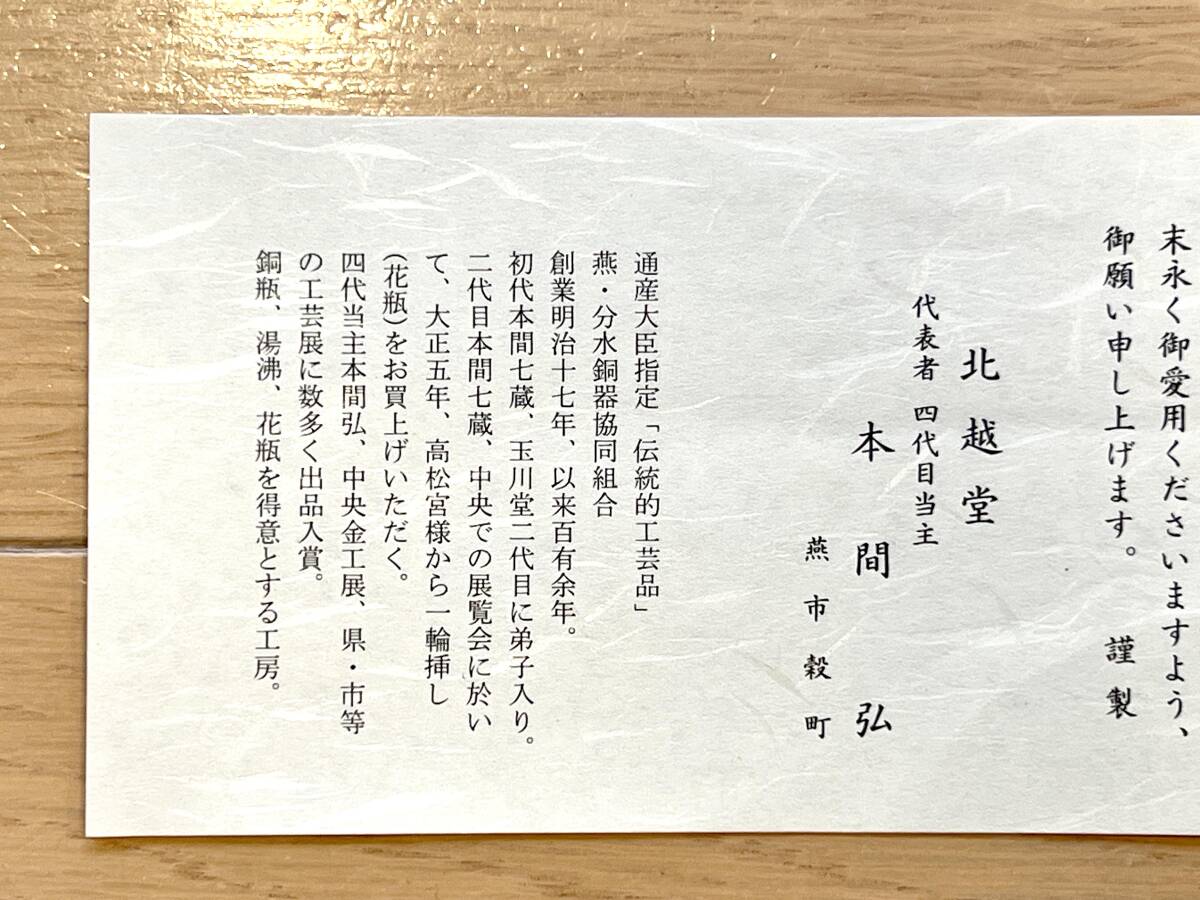 末永く御愛用くださいますよう、
御願い申し上げます。 謹製
北越堂
代表者 四代目当主
本間弘
燕市穀町
通産大臣指定「伝統的工芸品」
燕・分水銅器協同組合
創業明治十七年、以来百有余年。
初代本間七蔵、玉川堂二代目に弟子入り。
二代目本間七蔵、中央での展覧会に於い
て、大正五年、高松宮様から一輪挿し
(花瓶)をお買上げいただく。
四代当主本間弘、中央金工展、県・市等
の工芸展に数多く出品入賞。
銅瓶、湯沸、花瓶を得意とする工房。